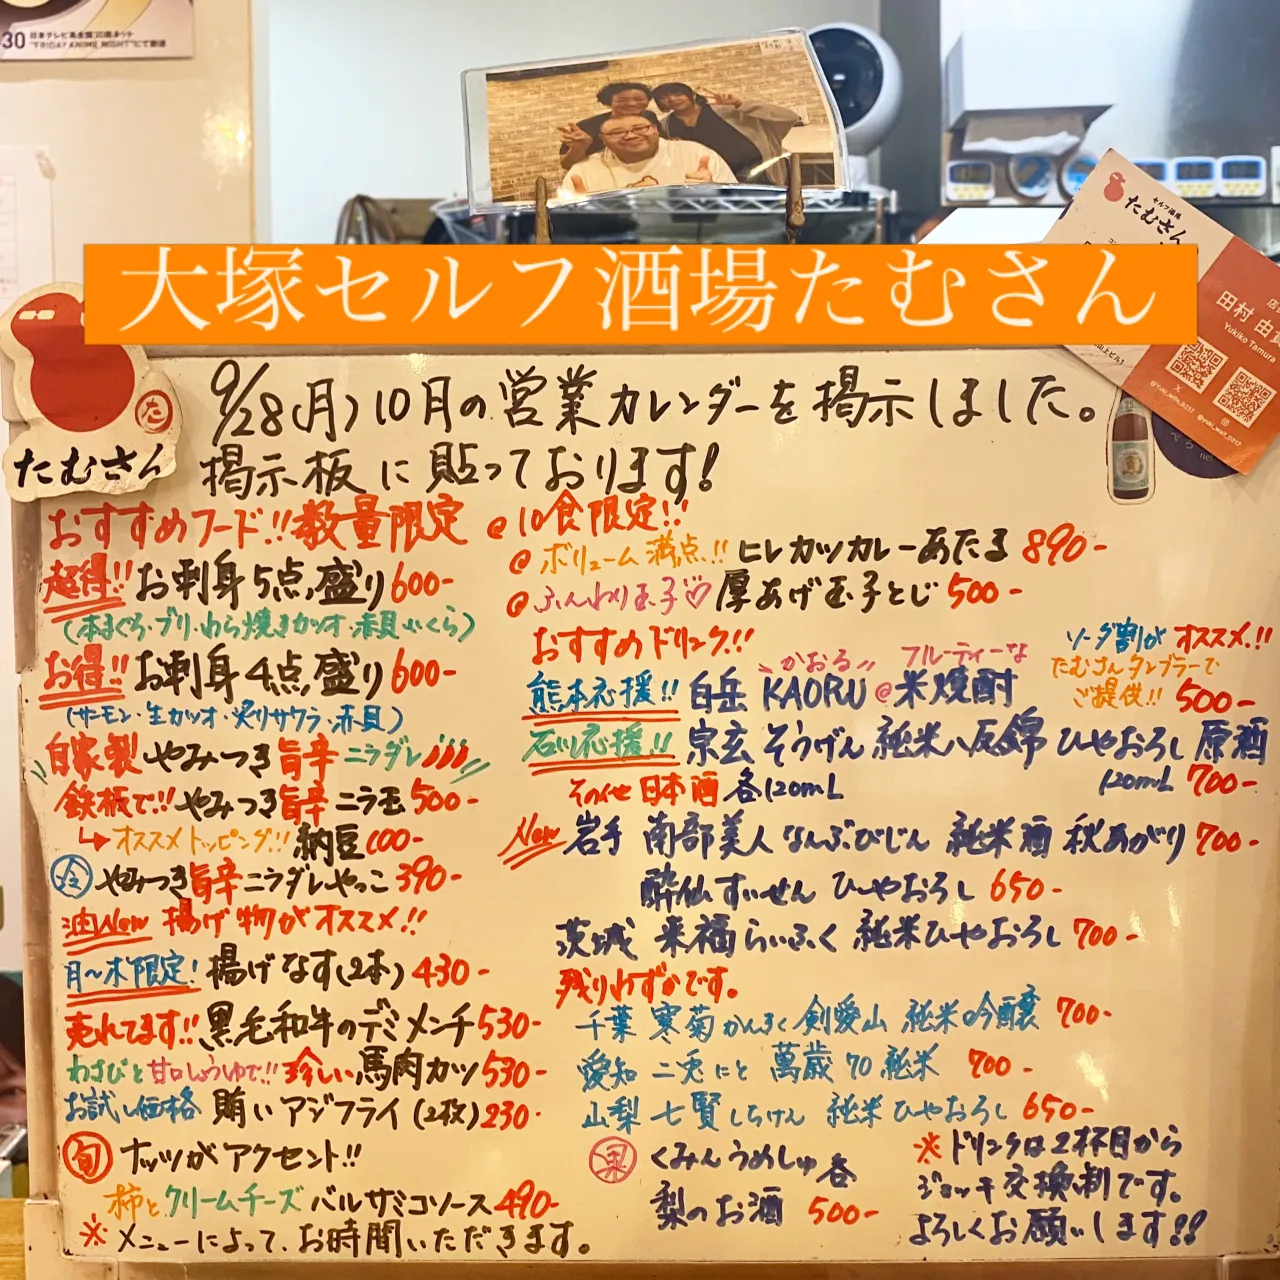 30 日本テレビ系全国30局ネット
"FRIDAY ANIME NIGHT"にて放送
セルフ酒場
たむさん
田村 由
Yukiko Tamura
大塚セルフ酒場たむさん
た
たむさん
9/28(月)10月の営業カレンダーを掲示しました。
掲示板に貼っております!
おすすめフード!!数量限定
超得!! お刺身5点盛り600-
(本まぐろ・ブリ・わら焼きカツオ・赤貝・いくら)
お得!! お刺身4点盛り600-
(サーモン・生カツオ・炙りサワラ・赤貝)
自家製やみつき旨辛ニラダレ
鉄板で!!やみつき旨辛ニラ玉500-
↳オススメトッピング!!納豆100-
冷 やみつき旨辛ニラダレやっこ390-
油New 揚げ物がオススメ!!
月〜木限定! 揚げなす(2本)430-
売れてます!!黒毛和牛のデミメンチ530-
わさびと甘口しょうゆで!!珍しい馬肉カツ530-
お試し価格 賄いアジフライ(2枚)230-
旬 ナッツがアクセント!!
柿とクリームチーズバルサミコソース490-
※メニューによって、お時間いただきます。
@10食限定!!
@ボリューム満点!!ヒレカツカレーあたる890-
@ふんわり玉子♡厚あげ玉子とじ500-
おすすめドリンク!!
ソーダ割がオススメ!!
かおる フルーティーな
熊本応援!! 白岳 KAORU@米焼酎
たむさんタンブラーで
ご提供!! 500-
石川応援!! 宗玄そうげん 純米八反錦 ひやおろし 原酒
120mL 700-
その他日本酒各120mL
New 岩手 南部美人なんぶびじん 純米酒 秋あがり700-
酔仙すいせん ひやおろし 650-
茨城 来福らいふく 純米ひやおろし 700-
残りわずかです。
千葉 寒菊かんきく 剣愛山 純米吟醸 700-
愛知 二兎にと 萬歳70純米 700-
山梨 七賢しちけん 純米ひやおろし 650-
果 くみんうめしゅ各
梨のお酒 500-
※ドリンクは2杯目から
ジョッキ交換制です。
よろしくお願いします!!